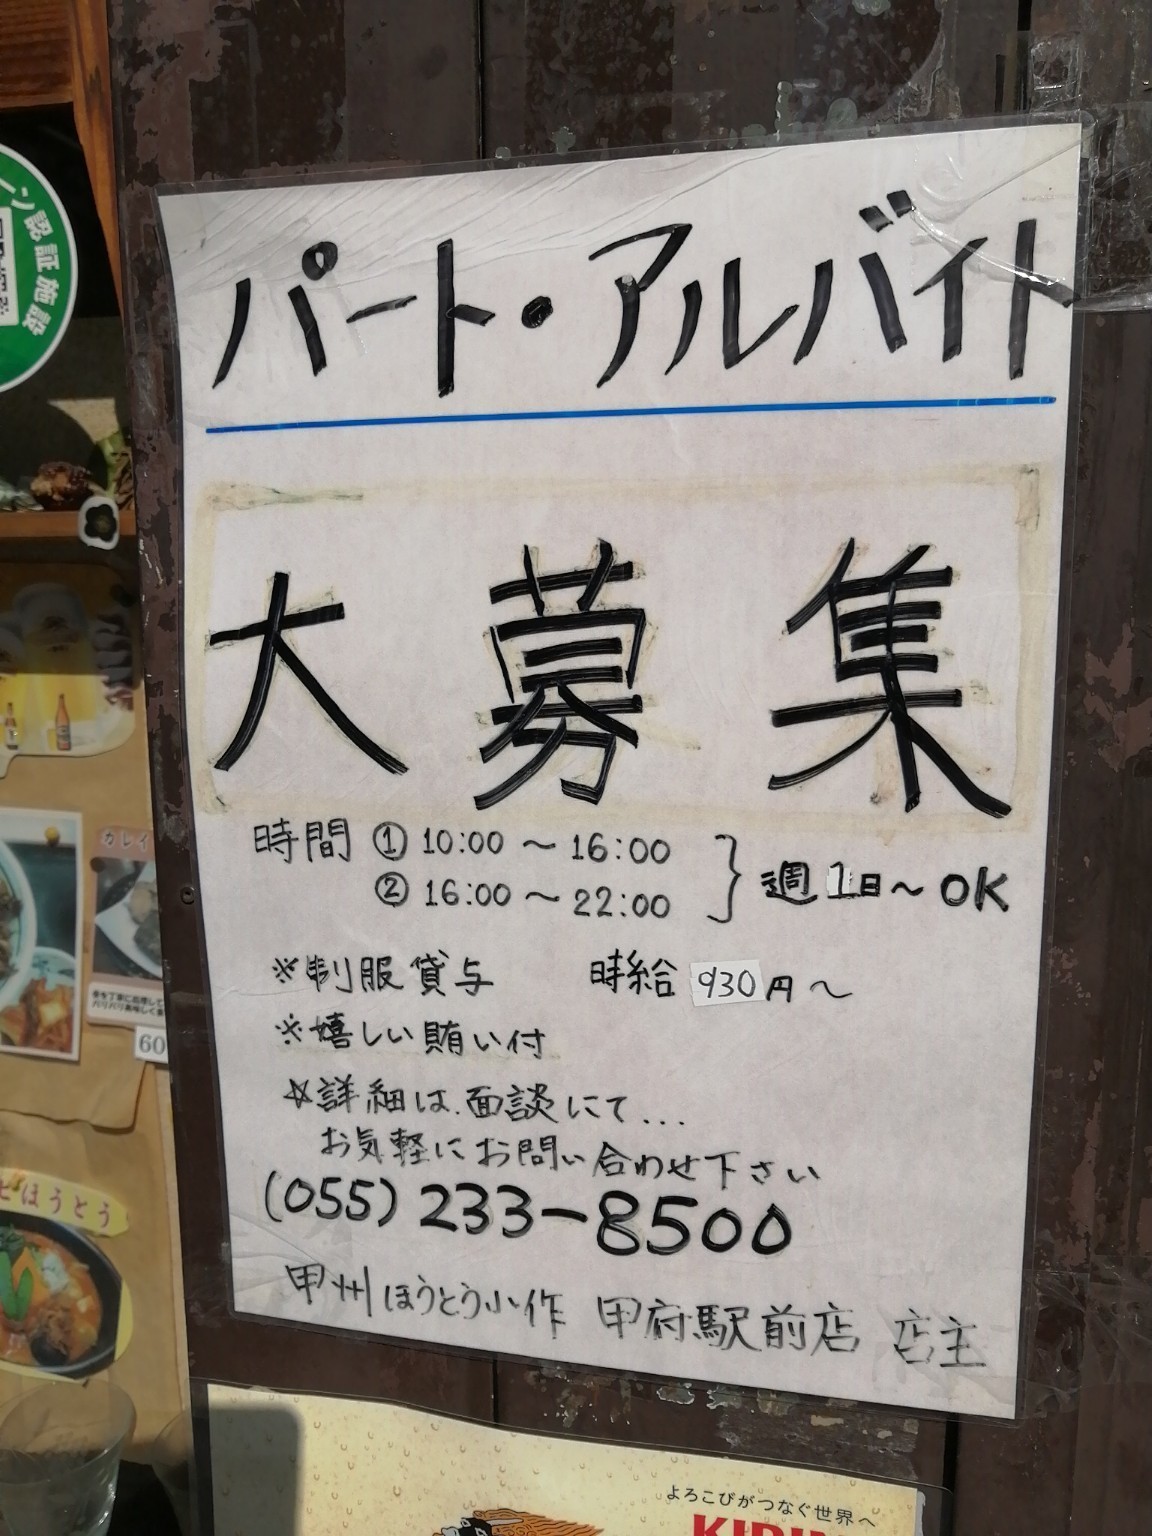 パート・アルバイト
大募集
時間 ① 10:00 ～ 16:00
② 16:00 ～ 22:00
週1日～OK
※制服貸与 時給 930円～
※嬉しい賄い付
☆詳細は、面談にて...
お気軽にお問い合わせ下さい
(055) 233-8500
甲州ほうとう小作 甲府駅前店 店主
よろこびがつなぐ世界へ
KIRIN
ン認証施設
カレイ
60
ほうとう